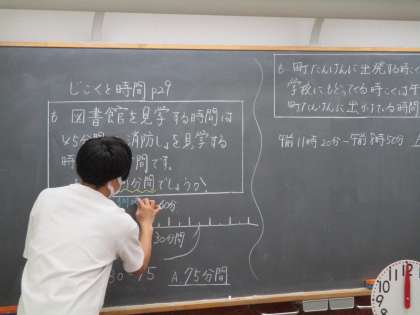 じこくと時間 p29
も 図書館を見学する時間は
45分間 消防しょを見学する
時 間です。
分間でしょうか
60分
30分間
30 75
A.75分間
も 町たんけんに出発する時こく
学校にもどってくる時こくは午
町たんけんに出かけている時間
午前11時20分－午前8時50分
12
11
10
9
8